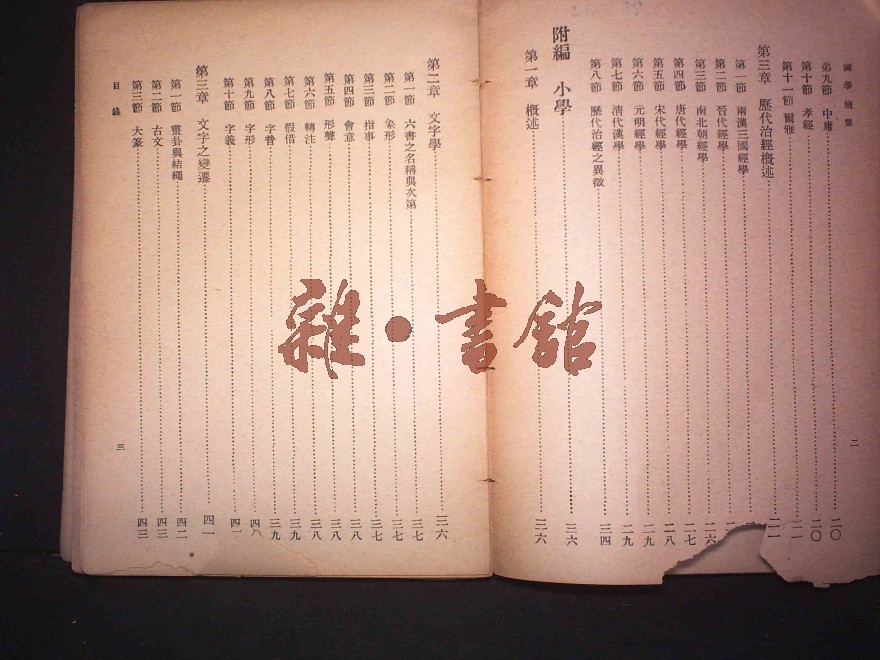 國學
二
第九節　中庸……二〇
第十節　孝經……二〇
第十一節　爾雅……二一
第三章　歷代治經概述……二一
第一節　兩漢三國經學
第二節　晉代經學
第三節　南北朝經學……二六
第四節　唐代經學……二七
第五節　宋代經學……二八
第六節　元明經學……二九
第七節　清代漢學……二九
第八節　歷代治經之異徵……三四
附編　小學……三六
第一章　概述……三六
第二章　文字學……三六
第一節　六書之名稱與次第……三七
第二節　象形……三七
第三節　指事……三七
第四節　會意……三八
第五節　形聲……三八
第六節　轉注……三八
第七節　假借……三九
第八節　字音……三九
第九節　字形……四〇
第十節　字義……四一
第三章　文字之變遷……四一
第一節　畫卦與結繩……四二
第二節　古文……四三
第三節　大篆……四三
目錄
三
雜·書館